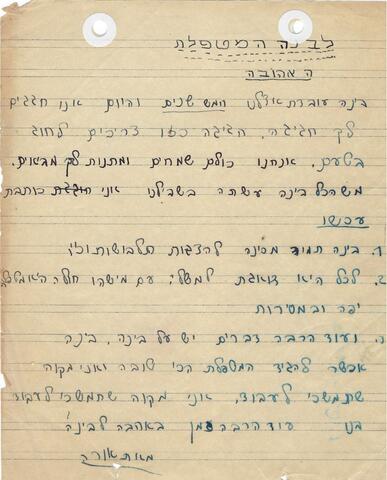 לבינה המטפלת
האהובה
בינה עובדת אצלנו חמש שנים והיום אנו חגגים
לך חגיגה, חגיגה כזו צריכים לחוג
בטעם. אנחנו כולם שמחים ומתנות לך מביאים.
מש הכל בינה עשתה בשבילנו אני כותבת
עכשו
1. בינה תמיד מכינה להצגות תלבושות וכ'ו
2. לכל היא דואגת למשל; עם מישהו חולה היא
יפה ובמסירות
3. ועוד הרבה דברים יש על בינה, בינה
אפשר להגיד המטפלת הכי טובה ואני מקוה
שתמשכי לעבוד, אני מקוה שתמשכי לעבוד
עוד הרבה זמן באהבה לבינה
מאת אורה